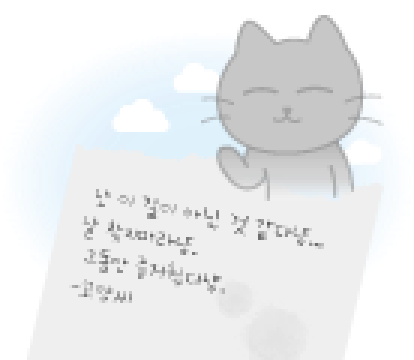 난 이 길이 아닌 것 같다냥...
날 찾지마라냥.
그동안 즐거웠다냥.